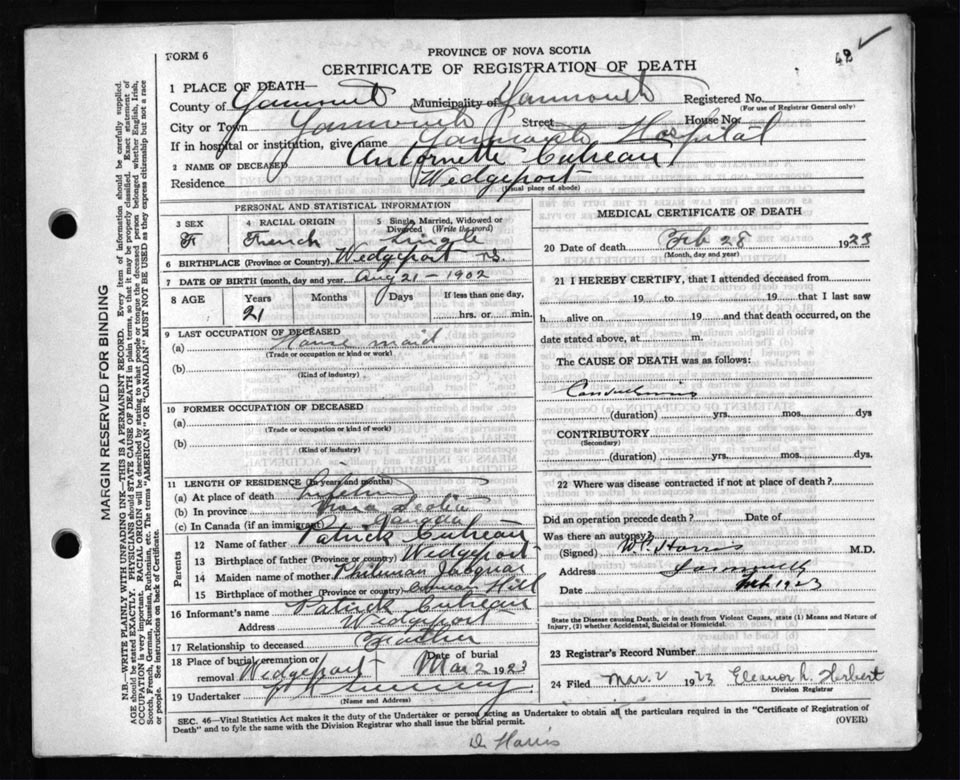 42 ✓
FORM 6
PROVINCE OF NOVA SCOTIA
CERTIFICATE OF REGISTRATION OF DEATH
MARGIN RESERVED FOR BINDING
N.B.—WRITE PLAINLY WITH UNFADING INK—THIS IS A PERMANENT RECORD. Every item of information should be carefully supplied.
AGE should be stated EXACTLY. PHYSICIANS should STATE CAUSE OF DEATH in plain terms, so that it may be properly classified. Exact statement of
OCCUPATION is very important. RACIAL ORIGIN will be described by stating to what people or tongue the deceased person belonged whether English, Irish,
Scotch, French, German, Russian, Ruthenian, etc. The terms "AMERICAN" OR "CANADIAN" MUST NOT BE USED as they express citizenship but not a race
or people. See instructions on back of Certificate.
1 PLACE OF DEATH—
County of Yarmouth Municipality of Yarmouth Registered No.
(For use of Registrar General only)
City or Town Yarmouth Street House No
If in hospital or institution, give name Yarmouth Hospital
2 NAME OF DECEASED Antornette Cutreau
Residence Wedgeport
(Usual place of abode)
PERSONAL AND STATISTICAL INFORMATION
3 SEX F
4 RACIAL ORIGIN French
5 Single, Married, Widowed or Divorced (Write the word) Single
6 BIRTHPLACE (Province or Country) Wedgeport n.s.
7 DATE OF BIRTH (month, day and year) Aug 21 - 1902
8 AGE Years Months Days If less than one day,
21 hrs. or min.
9 LAST OCCUPATION OF DECEASED
(a) House maid
(Trade or occupation or kind or work)
(b)
(Kind of industry)
10 FORMER OCCUPATION OF DECEASED
(a)
(Trade or occupation or kind of work)
(b)
(Kind of industry)
11 LENGTH OF RESIDENCE (In years and months)
(a) At place of death Lifetime
(b) In province Nova Scotia
(c) In Canada (if an immigrant) Canada
Parents
12 Name of father Patrick Cutreau
13 Birthplace of father (Province or country) Wedgeport
14 Maiden name of mother
15 Birthplace of mother (Province or country) Hill
16 Informant's name Patrick Cutreau
Address Wedgeport
17 Relationship to deceased
18 Place of burial, cremation or removal Wedgeport Date of burial Mar 2 1923
19 Undertaker
(Name and Address)
MEDICAL CERTIFICATE OF DEATH
20 Date of death Feb 28 1923
(Month, day and year)
21 I HEREBY CERTIFY, that I attended deceased from
19 to 19 that I last saw
h alive on 19 and that death occurred, on the
date stated above, at m.
The CAUSE OF DEATH was as follows:
(duration) yrs. mos. dys
CONTRIBUTORY
(Secondary)
(duration) yrs. mos. dys.
22 Where was disease contracted if not at place of death?
Did an operation precede death? Date of
Was there an autopsy?
(Signed) Harris M.D.
Address Yarmouth
Date Feb. 1923
State the Disease causing Death, or in death from Violent Causes, state (1) Means and Nature of
Injury, (2) whether Accidental, Suicidal or Homicidal.
23 Registrar's Record Number
24 Filed Mar. 2 1923 Eleanor L. Herbert
Division Registrar
SEC. 46—Vital Statistics Act makes it the duty of the Undertaker or person acting as Undertaker to obtain all the particulars required in the "Certificate of Registration of
Death" and to fyle the same with the Division Registrar who shall issue the burial permit. (OVER)
D. Harris